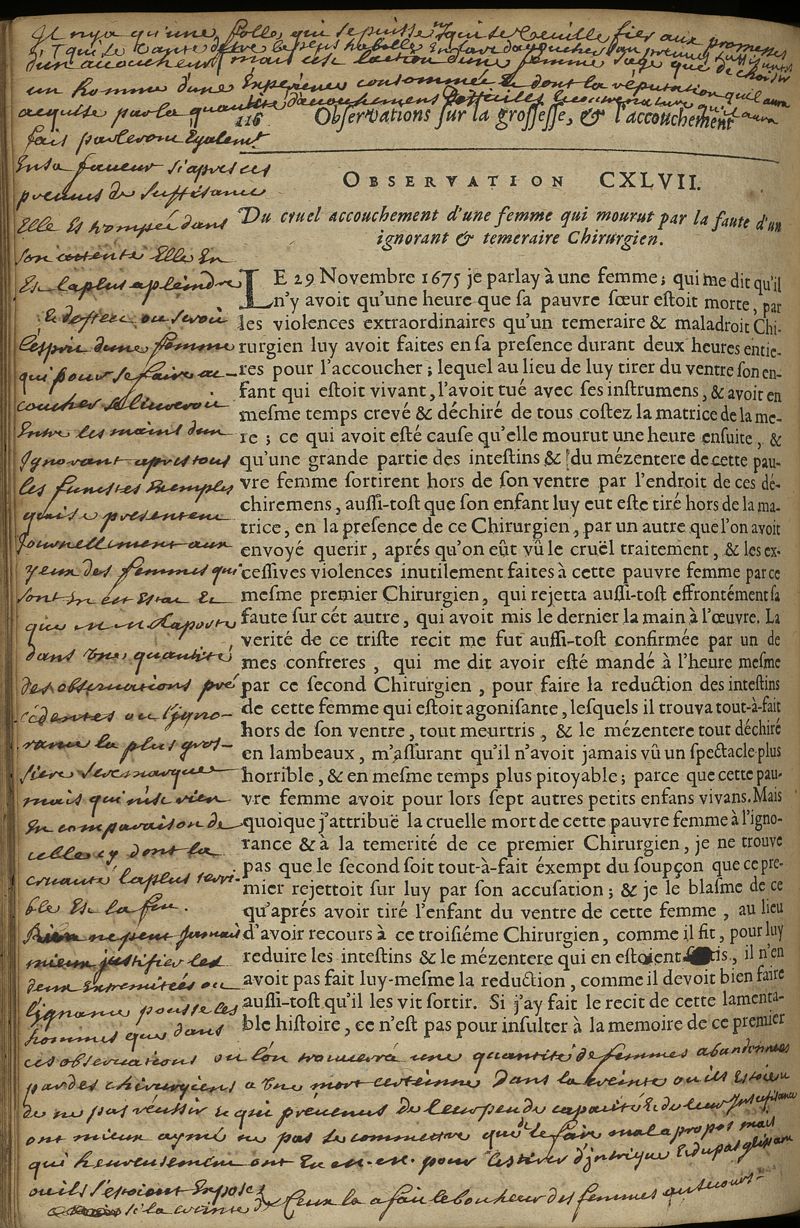 Il n'y a qu'une folle qui se puisse ny qui se veuille fier aux promesses
qui se vante d'être le plus habille
d'un accoucheur mais cest laction d'une femme sage que de choisir
un homme d'une Experience consommée & dont la réputation quil aura
acquise par la quantité d'acouchemens difficiles
116 Observations sur la grossesse, & l'accouchement
fait parleront Egalemt
En sa faveur si apres ces
preuves de suffisance
OBSERVATION CXLVII.
Elle Est trompée dans
Du cruel accouchement d'une femme qui mourut par la faute d'un
ignorant & temeraire Chirurgien.
son attente Elle En
Est la plus a pleindre
LE 29 Novembre 1675 je parlay à une femme; qui me dit qu'il
n'y avoit qu'une heure que sa pauvre sœur estoit morte, par
les violences extraordinaires qu'un temeraire & maladroit Chi-
rurgien luy avoit faites en sa presence durant deux heures entie-
res pour l'accoucher; lequel au lieu de luy tirer du ventre son en-
fant qui estoit vivant, l'avoit tué avec ses instrumens, & avoit en
mesme temps crevé & déchiré de tous costez la matrice de la me-
re; ce qui avoit esté cause qu'elle mourut une heure ensuite, &
qu'une grande partie des intestins & du mézentere de cette pau-
vre femme sortirent hors de son ventre par l'endroit de ces dé-
chiremens, aussi-tost que son enfant luy eut esté tiré hors de la ma-
trice, en la presence de ce Chirurgien, par un autre que l'on avoit
envoyé querir, aprés qu'on eût vû le cruël traitement, & les ex-
cessives violences inutilement faites à cette pauvre femme par ce
mesme premier Chirurgien, qui rejetta aussi-tost effrontément sa
faute sur cét autre, qui avoit mis le dernier la main à l'œuvre. La
verité de ce triste recit me fut aussi-tost confirmée par un de
mes confreres, qui me dit avoir esté mandé à l'heure mesme
par ce second Chirurgien, pour faire la reduction des intestins
de cette femme qui estoit agonisante, lesquels il trouva tout-à-fait
hors de son ventre, tout meurtris, & le mézentere tout déchiré
en lambeaux, m'assurant qu'il n'avoit jamais vû un spectacle plus
horrible, & en mesme temps plus pitoyable; parce que cette pau-
vre femme avoit pour lors sept autres petits enfans vivans. Mais
quoique j'attribuë la cruelle mort de cette pauvre femme à l'igno-
rance & à la temerité de ce premier Chirurgien, je ne trouve
pas que le second soit tout-à-fait éxempt du soupçon que ce pre-
mier rejettoit sur luy par son accusation; & je le blasme de ce
qu'aprés avoir tiré l'enfant du ventre de cette femme, au lieu
d'avoir recours à ce troisiéme Chirurgien, comme il fit, pour luy
reduire les intestins & le mézentere qui en estoient sortis, il n'en
avoit pas fait luy-mesme la reduction, comme il devoit bien faire
aussi-tost qu'il les vit sortir. Si j'ay fait le recit de cette lamenta-
ble histoire, ce n'est pas pour insulter à la memoire de ce premier
& desfect ou seroit
l'esprit d'une femme
qui pour se faire ac-
coucher se livreroit
Entre les mains d'un
Ignorant apres tous
les funestes Exemples
qui se presentent
Journellement aux
yeux des femmes qui
sont En cet Estat &
que M. M. Raporte
dans Une quantité
des observations pré
cédentes ou l'igno-
rance la plus gros-
siere se remarque
mais qui n'est rien
En comparaison de
celle cy dont la
cruauté la plus terri-
ble Est la fin.
Rien ne peut Jamais
mieux justifier les
deux Extremitées ou
l'ignorance pousse les
hommes que dans
ces observations ou lon trouvera une quantité de femmes abandonnées
par des chirurgiens a Une mort certeinne Dans la creinte ou ils Estoient
de ne pas réussir & qui prévenus De leur peu de capacité & de leur Insufisance
ont mieux aymé ne pas se commettre que de le faire mal a propos mais
qui heureusement ont Eu M. M. pour les tirer d'intrigue & du pas glissant
ou ils s'estoient Exposes
si la creinte de Ceux la a fait le bonheur des femmes